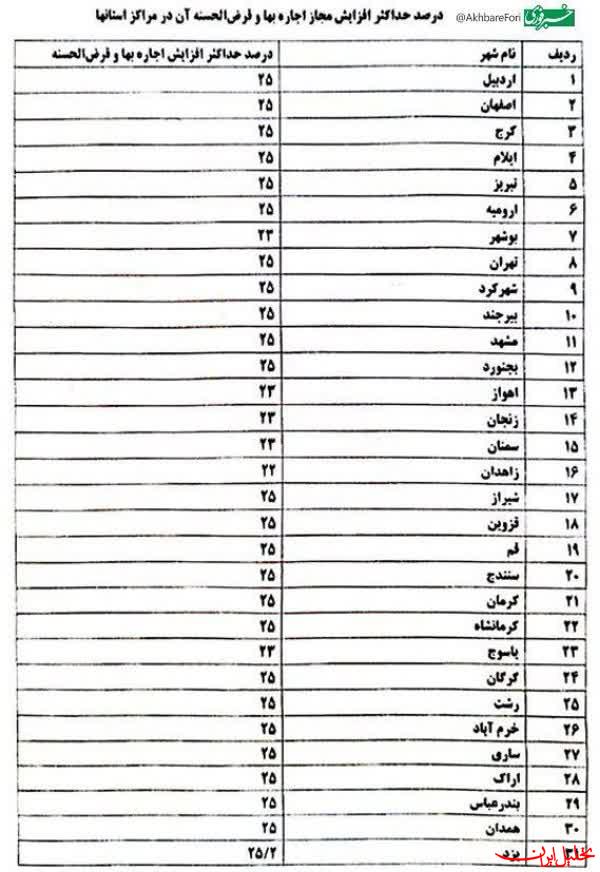 درصد حداکثر افزایش مجاز اجاره بها و قرض‌الحسنه آن در مراکز استانها @AkhbareFori خبرفوری
ردیف نام شهر درصد حداکثر افزایش اجاره بها و قرض‌الحسنه
۱ اردبیل ۲۵
۲ اصفهان ۲۵
۳ کرج ۲۵
۴ ایلام ۲۵
۵ تبریز ۲۵
۶ ارومیه ۲۵
۷ بوشهر ۲۳
۸ تهران ۲۵
۹ شهرکرد ۲۵
۱۰ بیرجند ۲۵
۱۱ مشهد ۲۵
۱۲ بجنورد ۲۵
۱۳ اهواز ۲۳
۱۴ زنجان ۲۳
۱۵ سمنان ۲۳
۱۶ زاهدان ۲۲
۱۷ شیراز ۲۵
۱۸ قزوین ۲۵
۱۹ قم ۲۵
۲۰ سنندج ۲۵
۲۱ کرمان ۲۵
۲۲ کرمانشاه ۲۵
۲۳ یاسوج ۲۳
۲۴ گرگان ۲۵
۲۵ رشت ۲۵
۲۶ خرم آباد ۲۵
۲۷ ساری ۲۵
۲۸ اراک ۲۵
۲۹ بندرعباس ۲۵
۳۰ همدان ۲۵
۳۱ یزد ۲۵/۲
تحلیل ایران